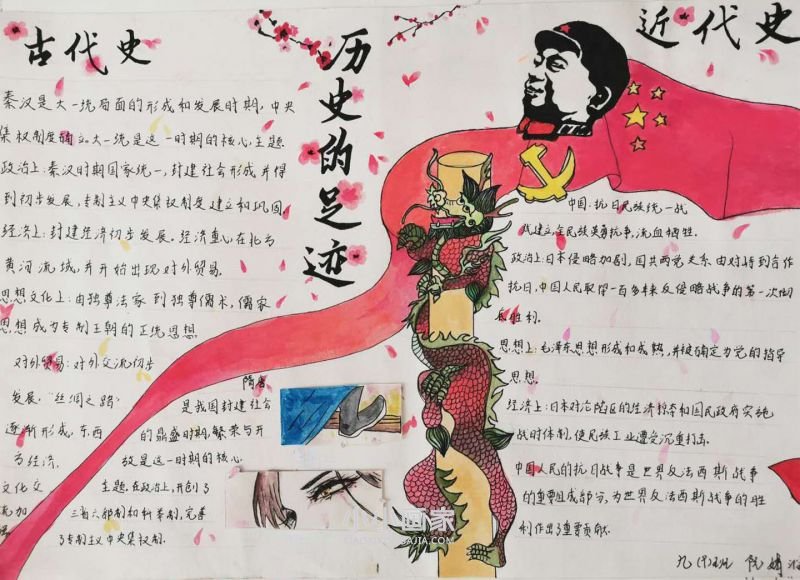 古代史
历史的足迹
近代史
秦汉是大一统局面的形成和发展时期，中央
集权制度确立。大一统是这一时期的核心主题
政治上：秦汉时期国家统一，封建社会形成并得
到初步发展，专制主义中央集权制度建立和巩固。
经济上：封建经济初步发展。经济重心在北方
黄河流域，并开始出现对外贸易。
思想文化上：由独尊法家到独尊儒术，儒家
思想成为专制王朝的正统思想。
对外贸易：对外交流初步
发展，“丝绸之路”
逐渐形成，东西
方经济，
文化交
流加
隋唐
是我国封建社会
的鼎盛时期，繁荣与开
放是这一时期的核心
主题，在政治上，开创了
三省六部制和科举制，完善
了专制主义中央集权制．
中国：抗日民族统一战
线建立，全民族英勇抗争，流血牺牲。
政治上：日本侵略加剧，国共两党关系由对峙到合作
抗日，中国人民取得一百多年来反侵略战争的第一次彻
底胜利．
思想上：毛泽东思想形成和成熟，并被确定为党的指导
思想．
经济上：日本对沦陷区的经济掠夺和国民政府实施
战时体制，使民族工业遭受沉重打击．
中国人民的抗日战争是世界反法西斯战争
的重要组成部分，为世界反法西斯战争的胜
利作出了重要贡献．
小小画家